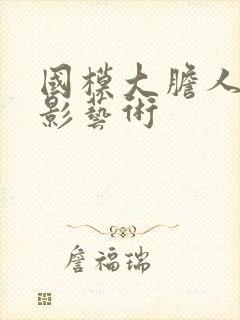 國模大膽人
影藝術
詹福瑞